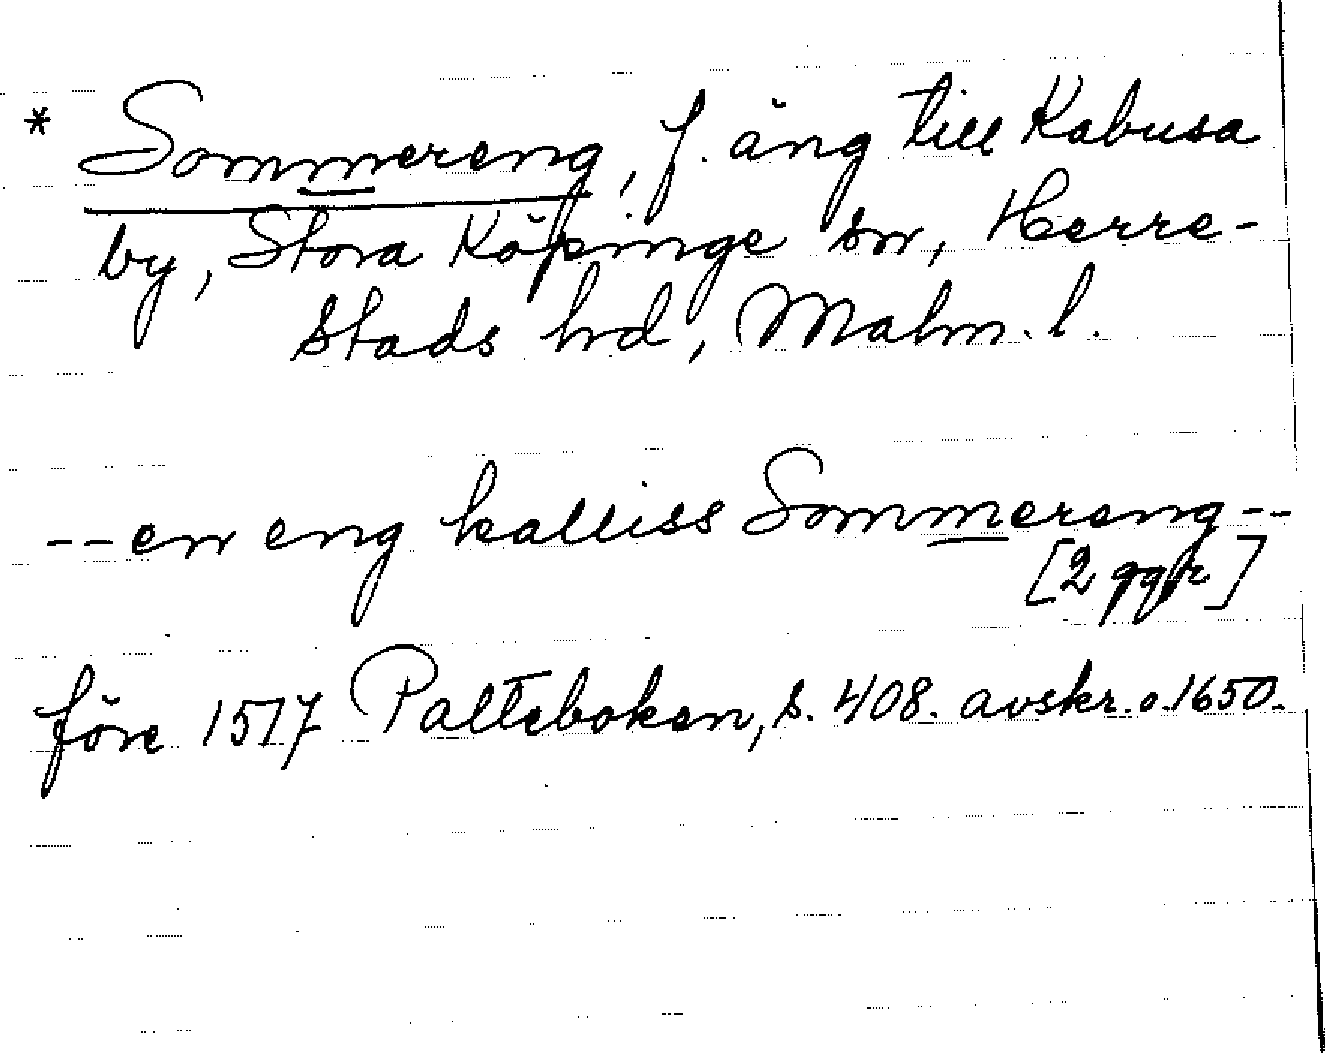 * Sommereng, f. äng till Kabusa
by, Stora Köpinge sn, Herre-
stads hd, Malm. l.
-- en eng kalliss Sommereng --
[2 ggr]
före 1517 Palteboken, s. 408. avskr. o. 1650.